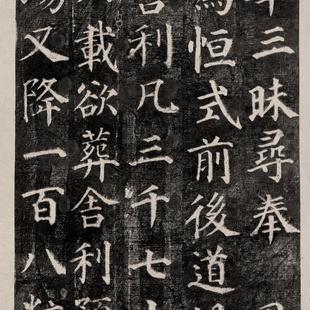 三昧尋奉
恒式前後道
舍利凡三千七
載欲葬舍利
又降一百八粒